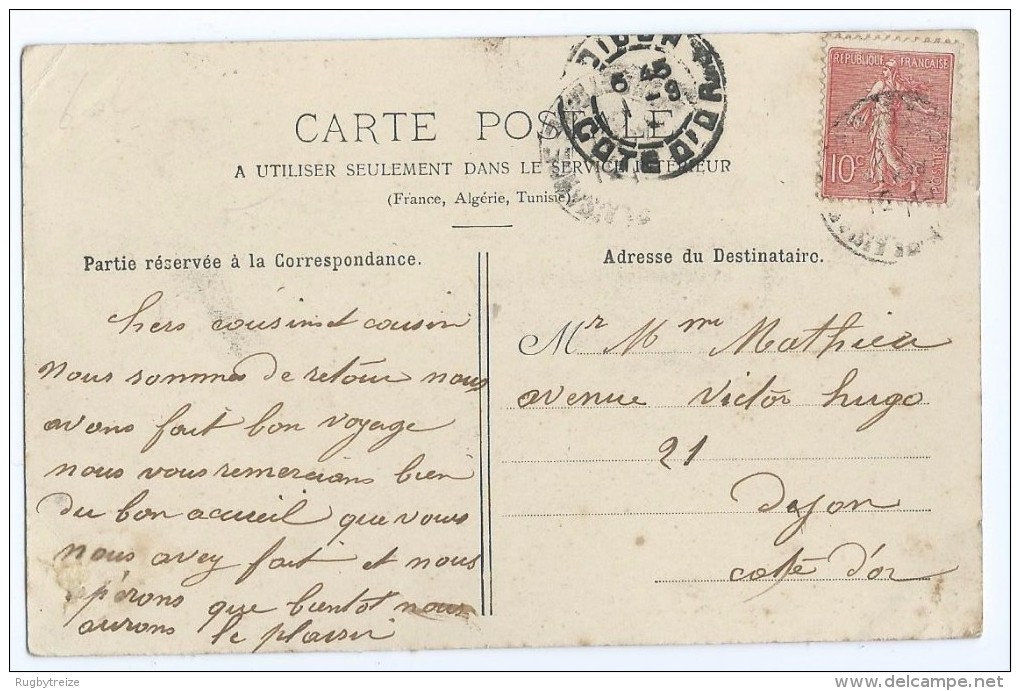 CARTE POSTALE
A UTILISER SEULEMENT DANS LE SERVICE INTÉRIEUR
(France, Algérie, Tunisie)
RÉPUBLIQUE FRANÇAISE
10c
POSTES
DIJON
6 45
1 - 9
COTE D'OR
Partie réservée à la Correspondance.
Chers cousins et cousin
nous sommes de retour nous
avons fait bon voyage
nous vous remercions bien
du bon accueil que vous
nous avez fait et nous
espérons que bientot nous
aurons le plaisir
Adresse du Destinataire.
Mr Mme Mathieu
avenue Victor hugo
21
Dijon
cote d'or
Rugbytreize
delcampe.net